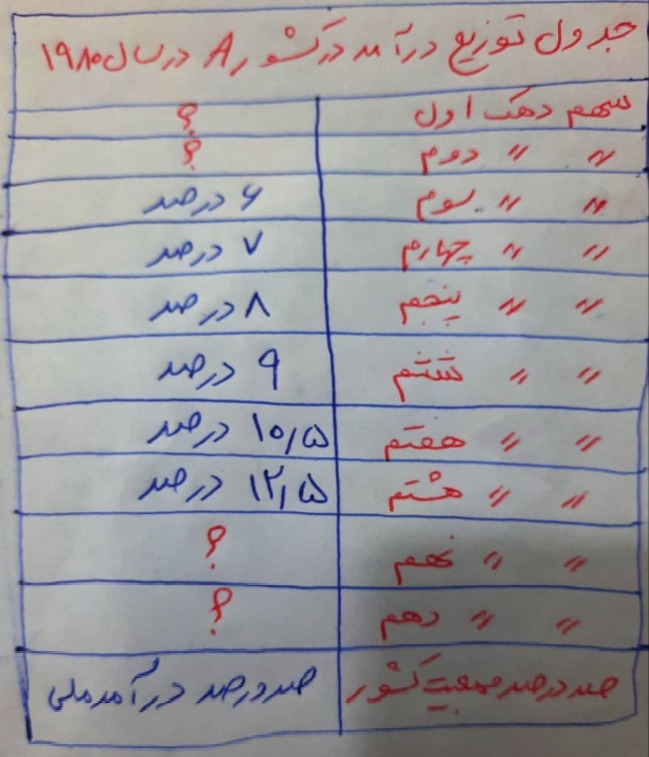 جدول توزیع درآمد در کشور A در سال ۱۹۸۰
سهم دهک اول ؟
〃 〃 دوم ؟
〃 〃 سوم ۶ درصد
〃 〃 چهارم ۷ درصد
〃 〃 پنجم ۸ درصد
〃 〃 ششم ۹ درصد
〃 〃 هفتم ۱۰٫۵ درصد
〃 〃 هشتم ۱۲٫۵ درصد
〃 〃 نهم ؟
〃 〃 دهم ؟
صد درصد جمعیت کشور صد درصد درآمد ملی